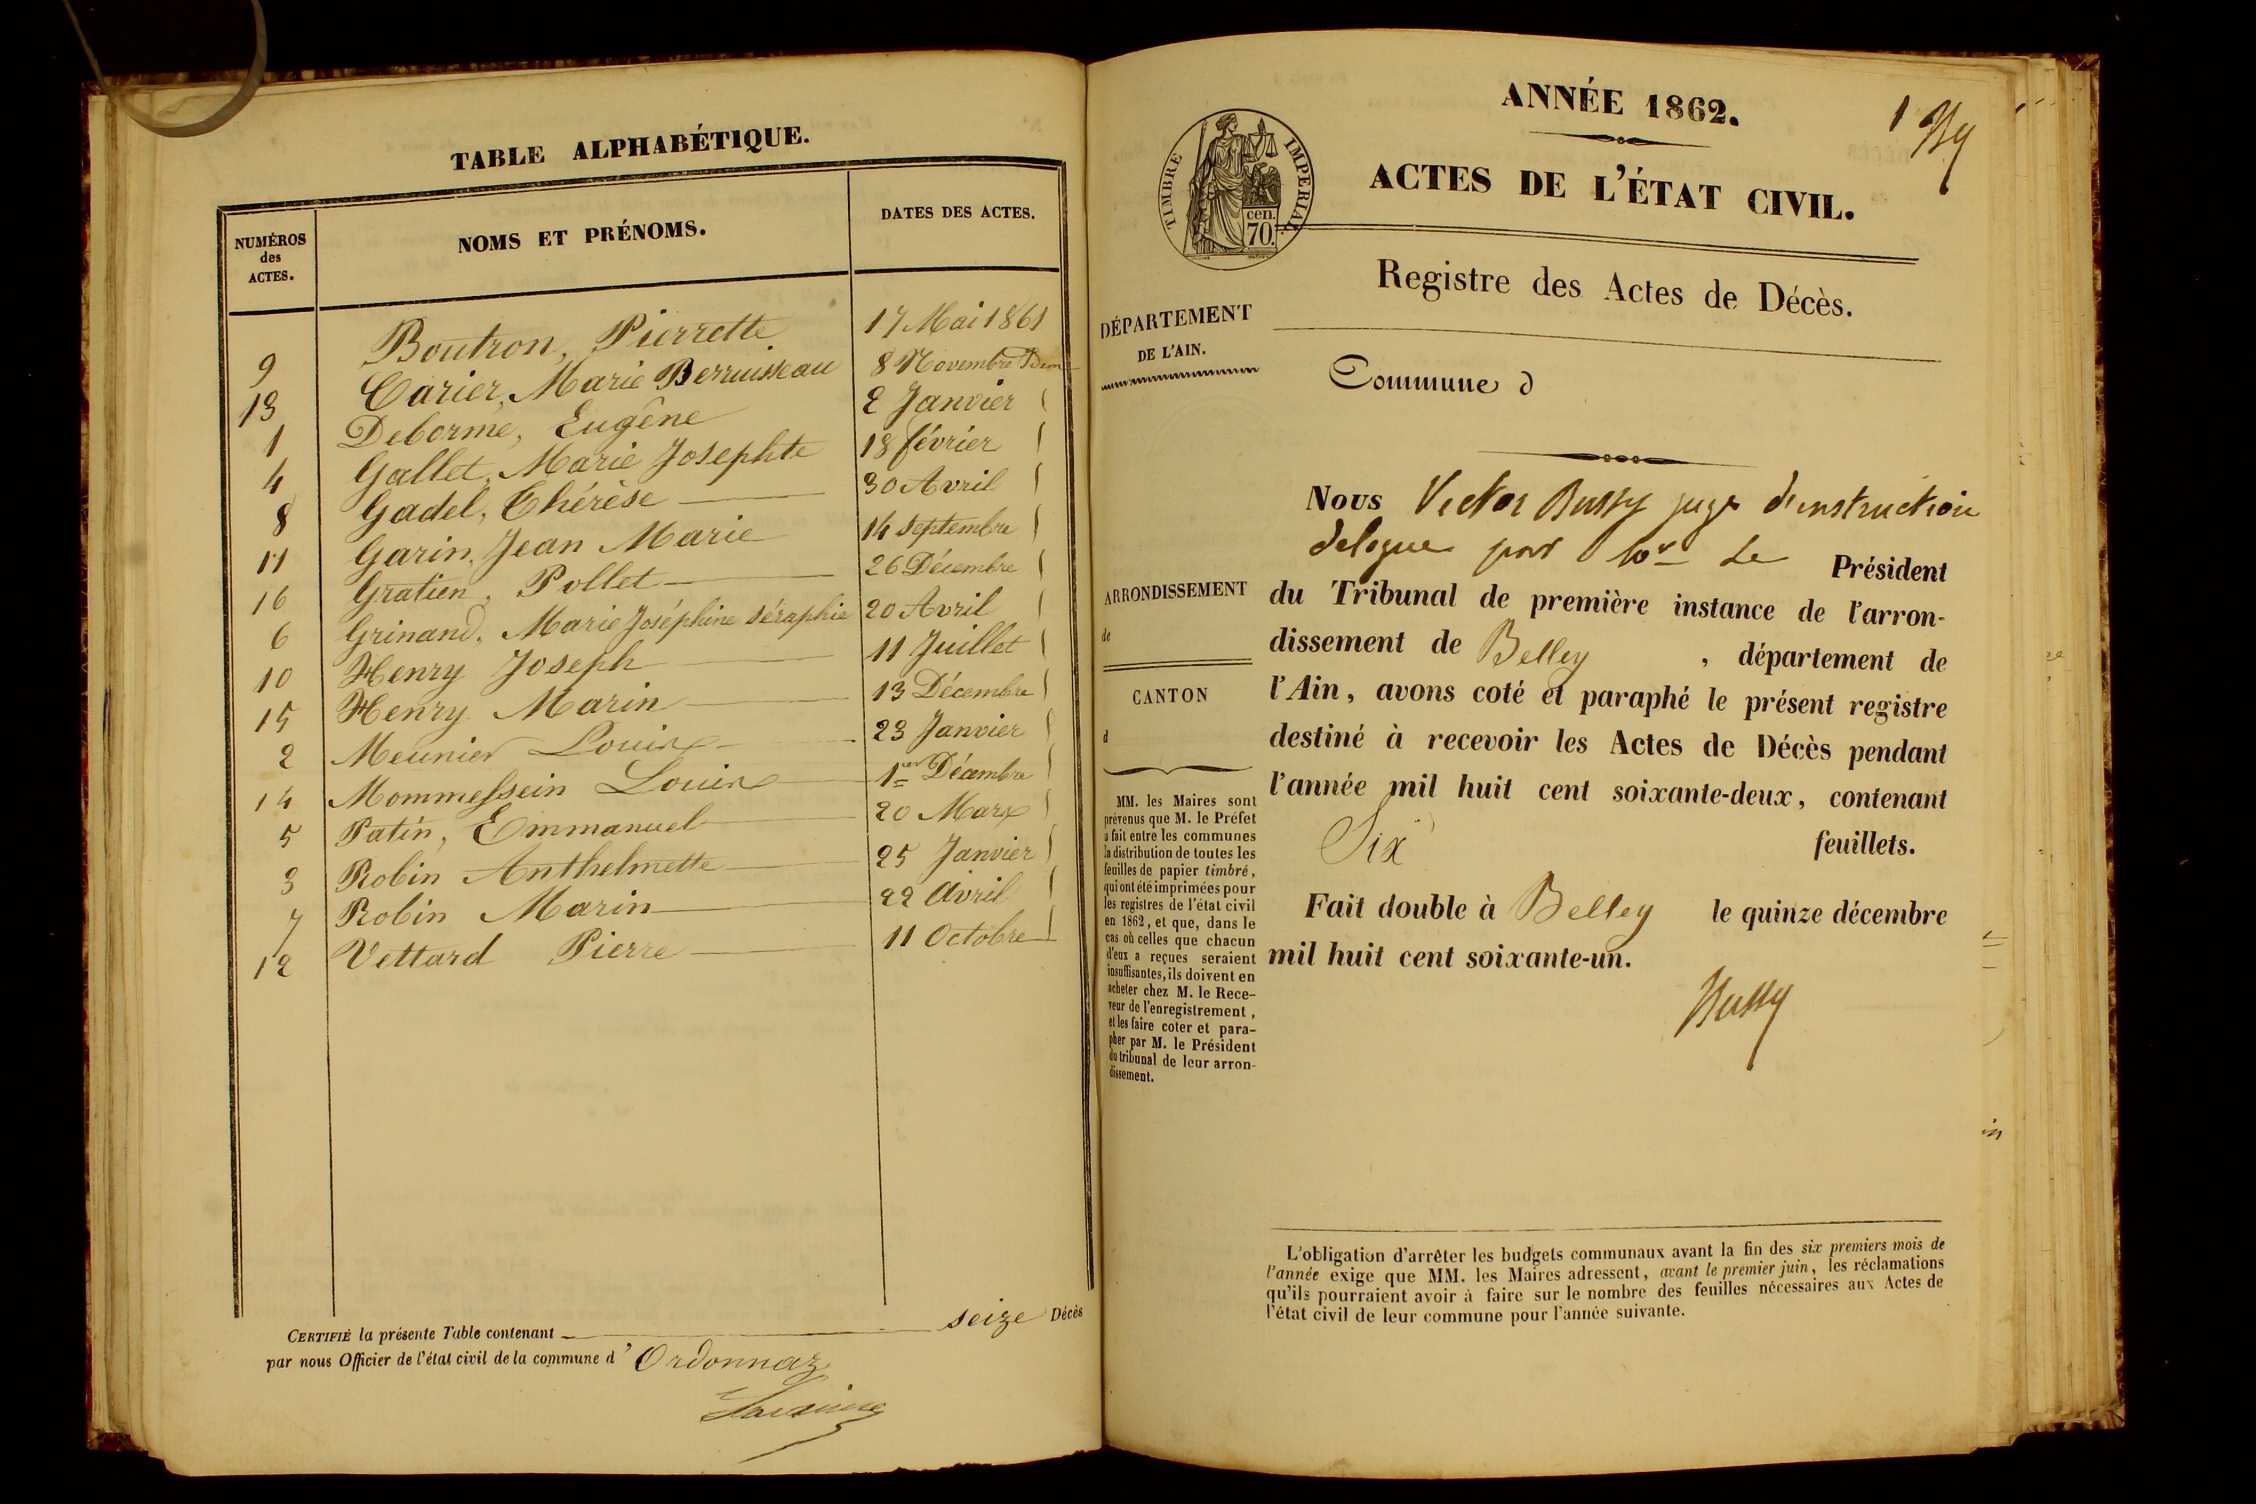 TABLE ALPHABÉTIQUE.
NUMÉROS des ACTES. NOMS ET PRÉNOMS. DATES DES ACTES.
9 Boutron, Pierrette 17 Mai 1861
13 Carier, Marie Berruisseau 8 Novembre
1 Deborme, Eugène 2 Janvier
4 Gallet, Marie Josephte 18 février
8 Gadel, Thérèse 30 Avril
11 Garin, Jean Marie 14 septembre
16 Gratien, Pollet 26 Décembre
6 Grinand, Marie Joséphine Séraphie 20 Avril
10 Henry Joseph 11 Juillet
15 Henry Marin 13 Décembre
2 Meunier Louise 23 Janvier
14 Mommessein Louise 1er Décembre
5 Patin, Emmanuel 20 Mars
3 Robin Anthelmette 25 Janvier
7 Robin Marin 22 Avril
12 Vettard Pierre 11 Octobre
CERTIFIÉ la présente Table contenant seize Décès
par nous Officier de l'état civil de la commune d'Ordonnaz
ANNÉE 1862.
1
TIMBRE IMPERIAL
cen.
70.
ACTES DE L'ÉTAT CIVIL.
Registre des Actes de Décès.
DÉPARTEMENT
DE L'AIN.
Commune d
ARRONDISSEMENT
de
CANTON
d
MM. les Maires sont
prévenus que M. le Préfet
a fait entre les communes
la distribution de toutes les
feuilles de papier timbré,
qui ont été imprimées pour
les registres de l'état civil
en 1862, et que, dans le
cas où celles que chacun
d'eux a reçues seraient
insuffisantes, ils doivent en
acheter chez M. le Rece-
veur de l'enregistrement,
et les faire coter et para-
pher par M. le Président
du tribunal de leur arron-
dissement.
Nous Victor Bussy juge d'instruction
delegue par Mr Le Président
du Tribunal de première instance de l'arron-
dissement de Belley, département de
l'Ain, avons coté et paraphé le présent registre
destiné à recevoir les Actes de Décès pendant
l'année mil huit cent soixante-deux, contenant
Six feuillets.
Fait double à Belley le quinze décembre
mil huit cent soixante-un.
Bussy
L'obligation d'arrêter les budgets communaux avant la fin des six premiers mois de
l'année exige que MM. les Maires adressent, avant le premier juin, les réclamations
qu'ils pourraient avoir à faire sur le nombre des feuilles nécessaires aux Actes de
l'état civil de leur commune pour l'année suivante.